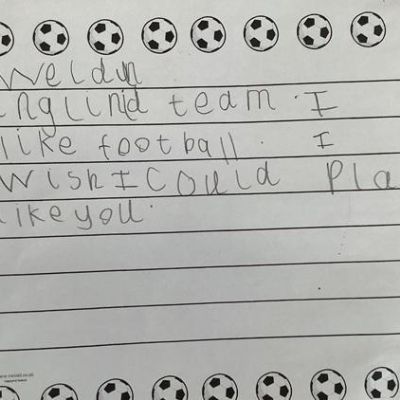 Weldun
inglinid team. I
like football. I
wish I could pla
like you.